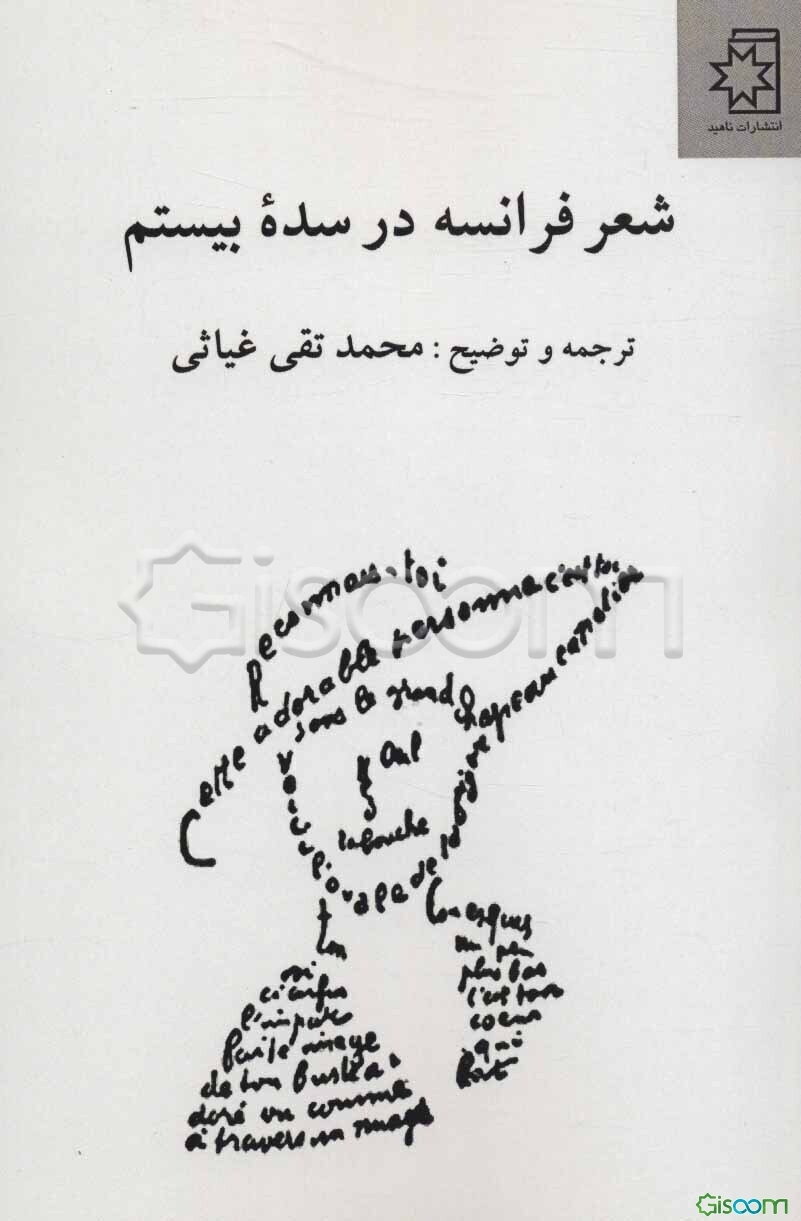 انتشارات ناهید
شعر فرانسه در سدهٔ بیستم
ترجمه و توضیح : محمد تقی غیاثی
Gisoom
Reconnais-toi
Cette adorable personne c'est toi
sous le grand chapeau canotier
Œil
la bouche
Voici l'ovale de ta figure
Ton
cou exquis
ci enfin
l'imparfaite image
de ton buste a
doré vu comme
à travers un nuage
un peu
plus bas
c'est ton
coeur
qui
bat
Gisoom